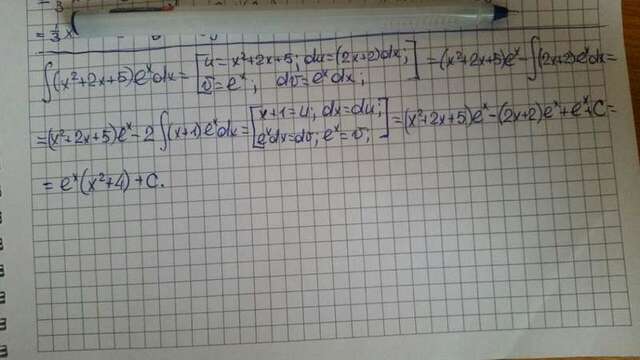 ∫(x²+2x+5)eˣdx = [u=x²+2x+5; du=(2x+2)dx; v=eˣ; dv=eˣdx;] = (x²+2x+5)eˣ - ∫(2x+2)eˣdx =
= (x²+2x+5)eˣ - 2∫(x+1)eˣdx = [x+1=u; dx=du; eˣdx=dv; eˣ=v;] = (x²+2x+5)eˣ - (2x+2)eˣ + eˣ + C =
= eˣ(x²+4) + C.